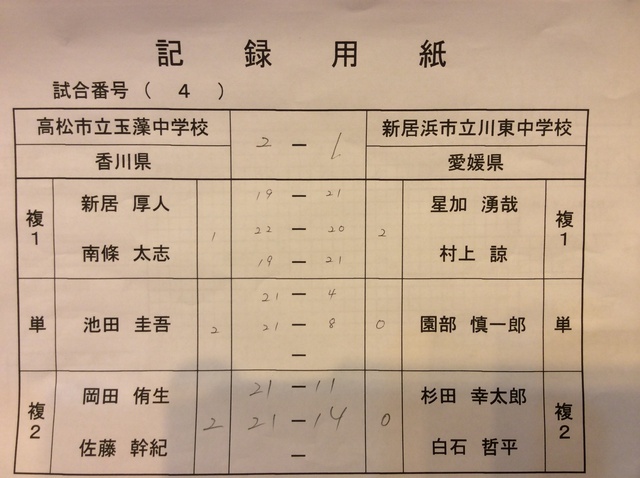 記録用紙
試合番号（ 4 ）
高松市立玉藻中学校 2 ー 1 新居浜市立川東中学校
香川県 愛媛県
複1 新居 厚人 南條 太志 1
19 ー 21
22 ー 20
19 ー 21
2 星加 湧哉 村上 諒 複1
単 池田 圭吾 2
21 ー 4
21 ー 8
ー
0 園部 慎一郎 単
複2 岡田 侑生 佐藤 幹紀 2
21 ー 11
21 ー 14
ー
0 杉田 幸太郎 白石 哲平 複2